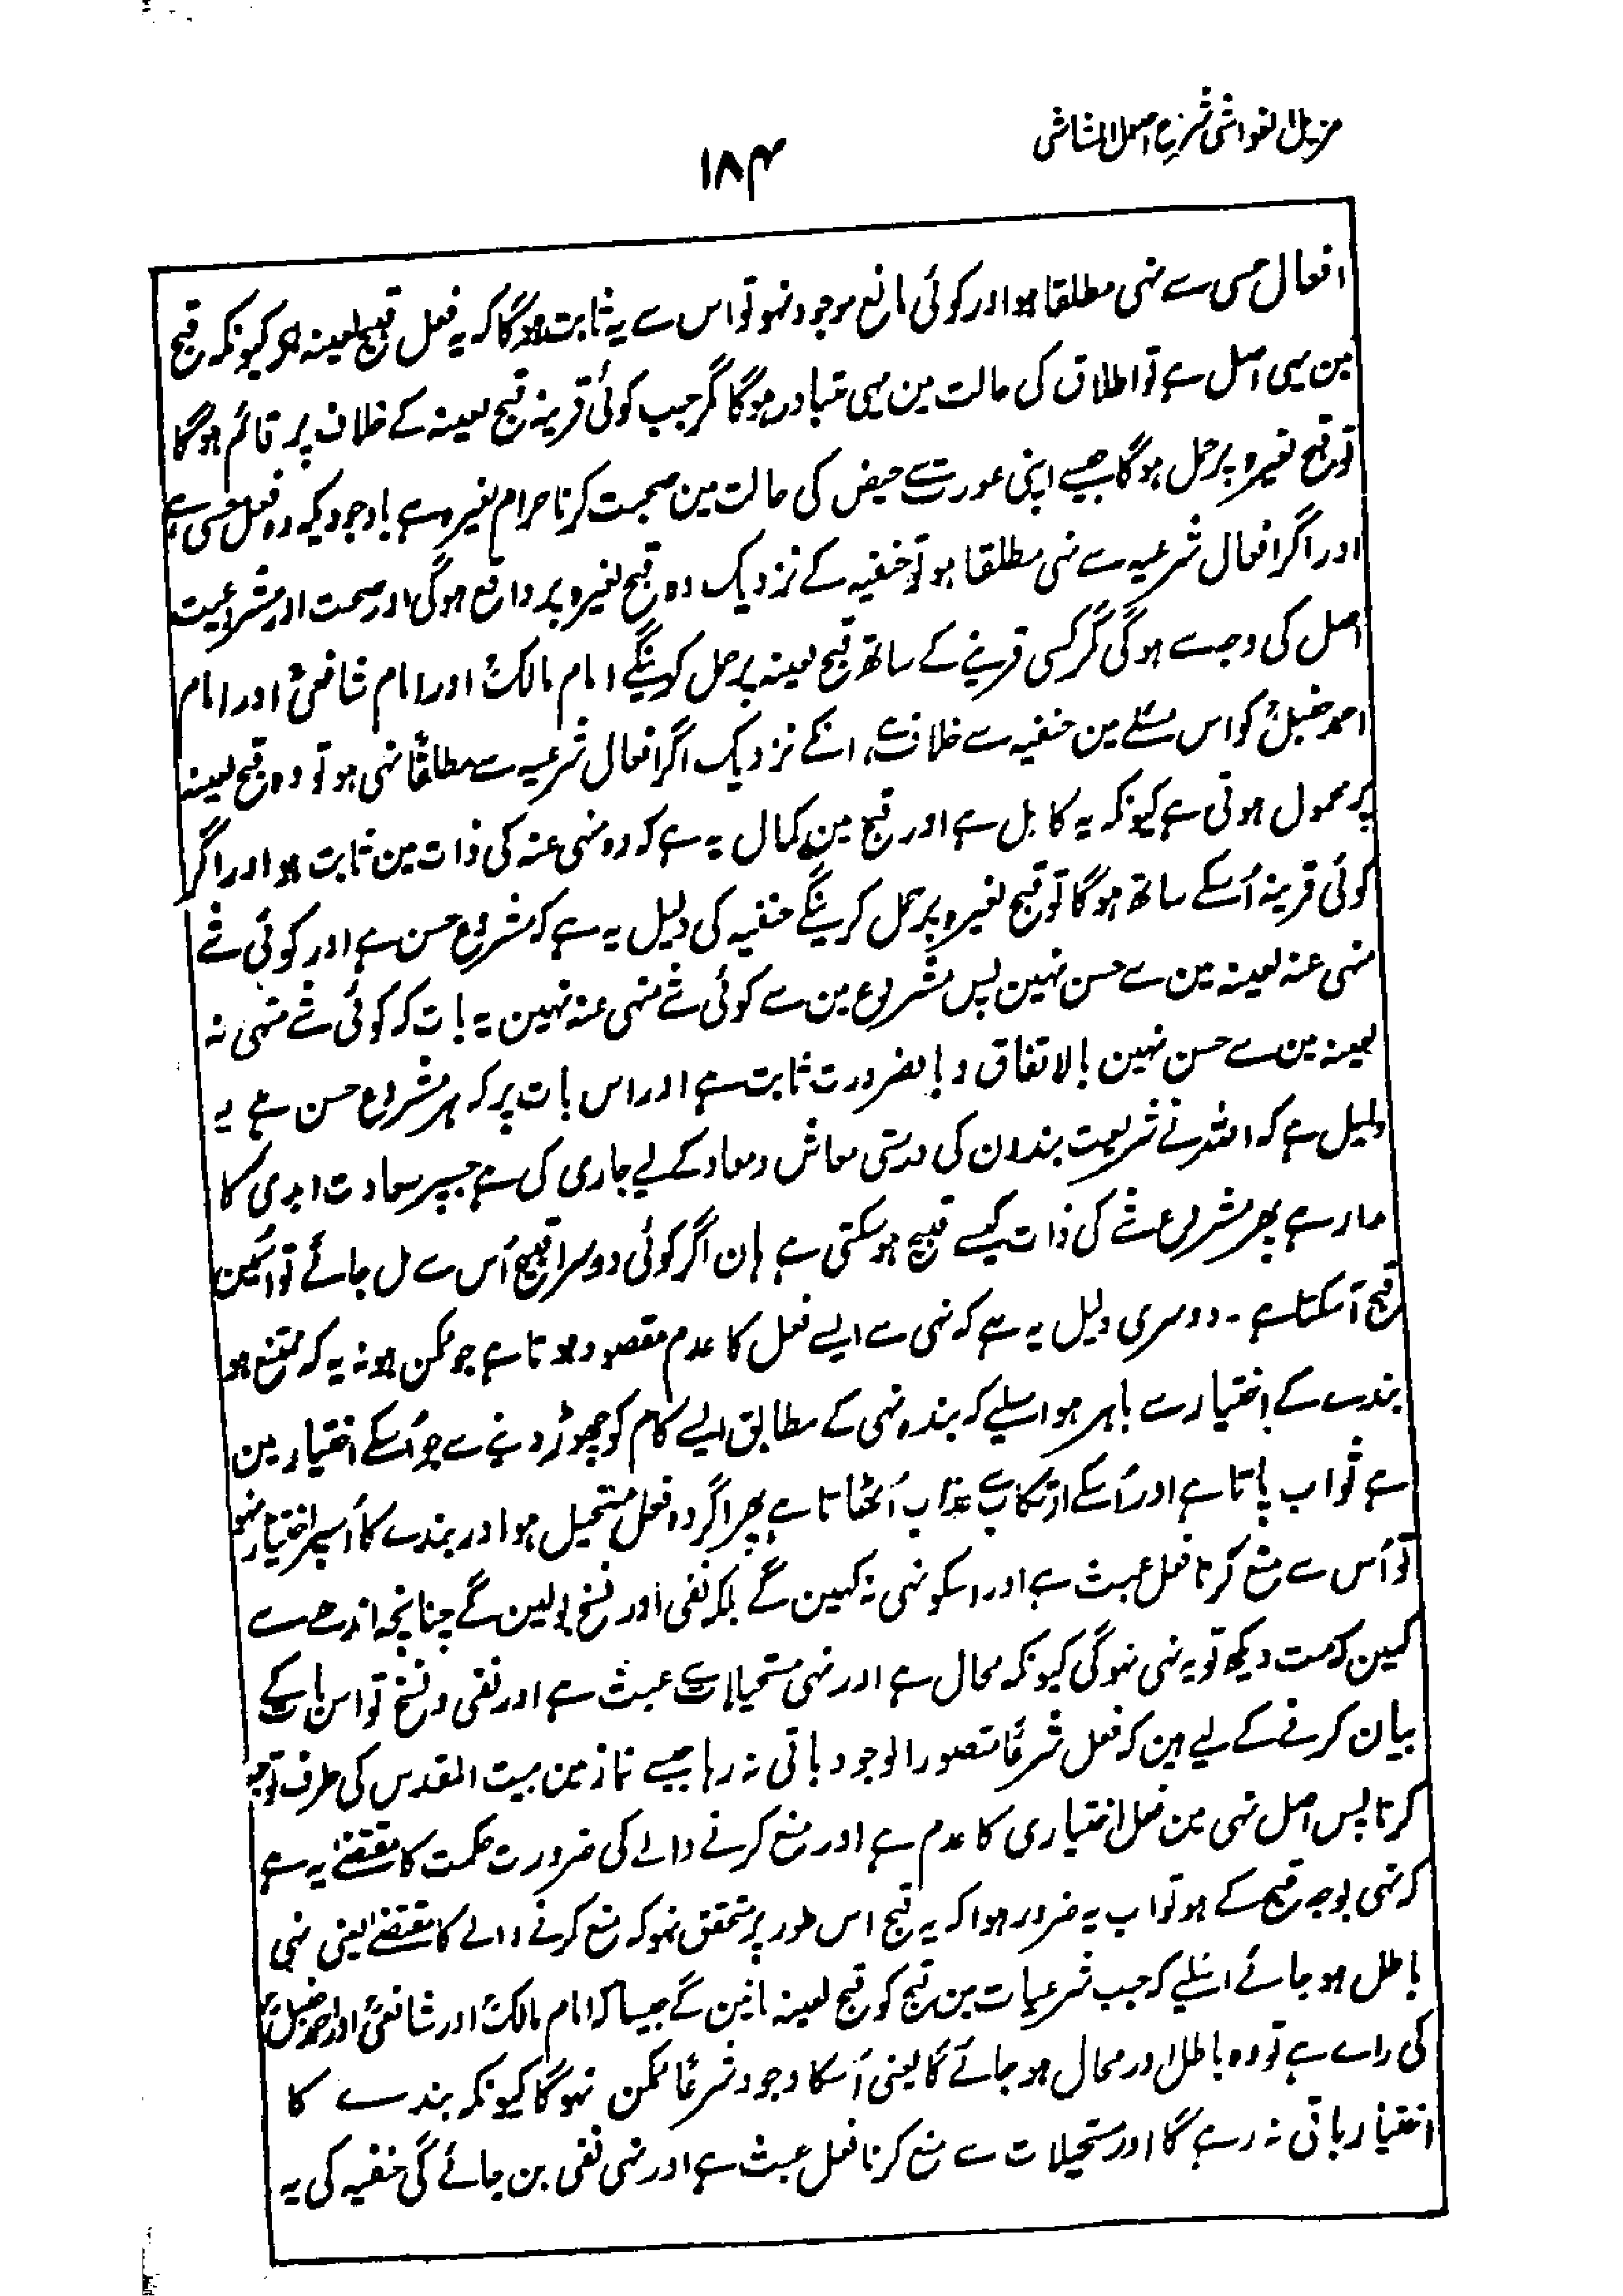 مزیل الغواشی شرح اصول الشاشی
۱۸۴
افعال حسی سے نہی مطلقا ہو اور کوئی مانع موجود نہو تو اس سے یہ ثابت ہوگا کہ یہ فعل قبیح لعینہ ہو کیونکہ قبح
مین یہی اصل ہے تو اطلاق کی حالت مین یہی متبادر ہوگا مگر جب کوئی قرینہ قبح لعینہ کے خلاف پر قائم ہوگا
تو قبح لغیرہ پر حمل ہوگا جیسے اپنی عورت سے حیض کی حالت مین صحبت کرنا حرام لغیرہ ہے باوجودیکہ وہ فعل حسی ہے
اور اگر افعال شرعیہ سے نہی مطلقا ہو تو حنفیہ کے نزدیک وہ قبح لغیرہ پر واقع ہوگی اور صحت اور مشروعیت
اصل کی وجہ سے ہوگی مگر کسی قرینے کے ساتھ قبح لعینہ پر حمل کرینگے امام مالکؒ اور امام شافعیؒ اور امام
احمد حنبلؒ کو اس مسئلے مین حنفیہ سے خلاف ہے انکے نزدیک اگر افعال شرعیہ سے مطلقًا نہی ہو تو وہ قبح لعینہ
پر محمول ہوتی ہے کیونکہ یہ کامل ہے اور قبح مین کمال یہ ہے کہ وہ منہی عنہ کی ذات مین ثابت ہو اور اگر
کوئی قرینہ اُسکے ساتھ ہوگا تو قبح لغیرہ پر حمل کرینگے حنفیہ کی دلیل یہ ہے کہ مشروع حسن ہے اور کوئی شے
منہی عنہ لعینہ مین سے حسن نہین پس مشروع مین سے کوئی شے منہی عنہ نہین یہ بات کہ کوئی شے منہی نہ
لعینہ مین سے حسن نہین بالاتفاق و بالضرورت ثابت ہے اور اس بات پر کہ ہر مشروع حسن ہے یہ
دلیل ہے کہ اللہ نے شریعت بندون کی درستی معاش و معاد کے لیے جاری کی ہے جسپر سعادت ابدی کا
مدار ہے پھر مشروع شے کی ذات کیسے قبیح ہوسکتی ہے ہان اگر کوئی دوسرا قبیح اُس سے مل جائے تو اسمین
قبح آسکتا ہے ۔ دوسری دلیل یہ ہے کہ نہی سے ایسے فعل کا عدم مقصود ہوتا ہے جو ممکن ہو نہ یہ کہ ممتنع ہو
بندے کے اختیار سے باہر ہو اسلیے کہ بندہ نہی کے مطابق ایسے کام کو چھوڑ دینے سے جو اُسکے اختیار مین
ہے ثواب پاتا ہے اور اُسکے ارتکاب سے عذاب اُٹھاتا ہے پھر اگر وہ فعل مستحیل ہو اور بندے کا اُسپر اختیار نہو
تو اُس سے منع کرنا فعل عبث ہے اور اسکو نہی نہ کہین گے بلکہ نفی اور نسخ بولین گے چنانچہ اندھے سے
کہین کہ مت دیکھ تو یہ نہی نہوگی کیونکہ محال ہے اور نہی مستحیلات سے عبث ہے اور نفی و نسخ تو اس بات کے
بیان کرنے کے لیے ہین کہ فعل شرعًا متصور الوجود باقی نہ رہا جیسے نماز مین بیت المقدس کی طرف توجہ
کرنا پس اصل نہی مین فعل اختیاری کا عدم ہے اور منع کرنے والے کی ضرورت حکمت کا مقتضےٰ یہ ہے
کہ نہی بوجہ قبح کے ہو تو اب یہ ضرور ہوا کہ یہ قبح اس طور پر متحقق نہو کہ منع کرنے والے کا مقتضےٰ یعنی نہی
باطل ہو جائے اسلیے کہ جب شرعیات مین قبح کو قبح لعینہ مانین گے جیسا کہ امام مالکؒ اور شافعیؒ اور احمد حنبلؒ
کی راے ہے تو وہ باطل اور محال ہو جائے گا یعنی اُسکا وجود شرعًا ممکن نہوگا کیونکہ بندے کا
اختیار باقی نہ رہے گا اور مستحیلات سے منع کرنا فعل عبث ہے اور نہی نفی بن جائے گی حنفیہ کی یہ